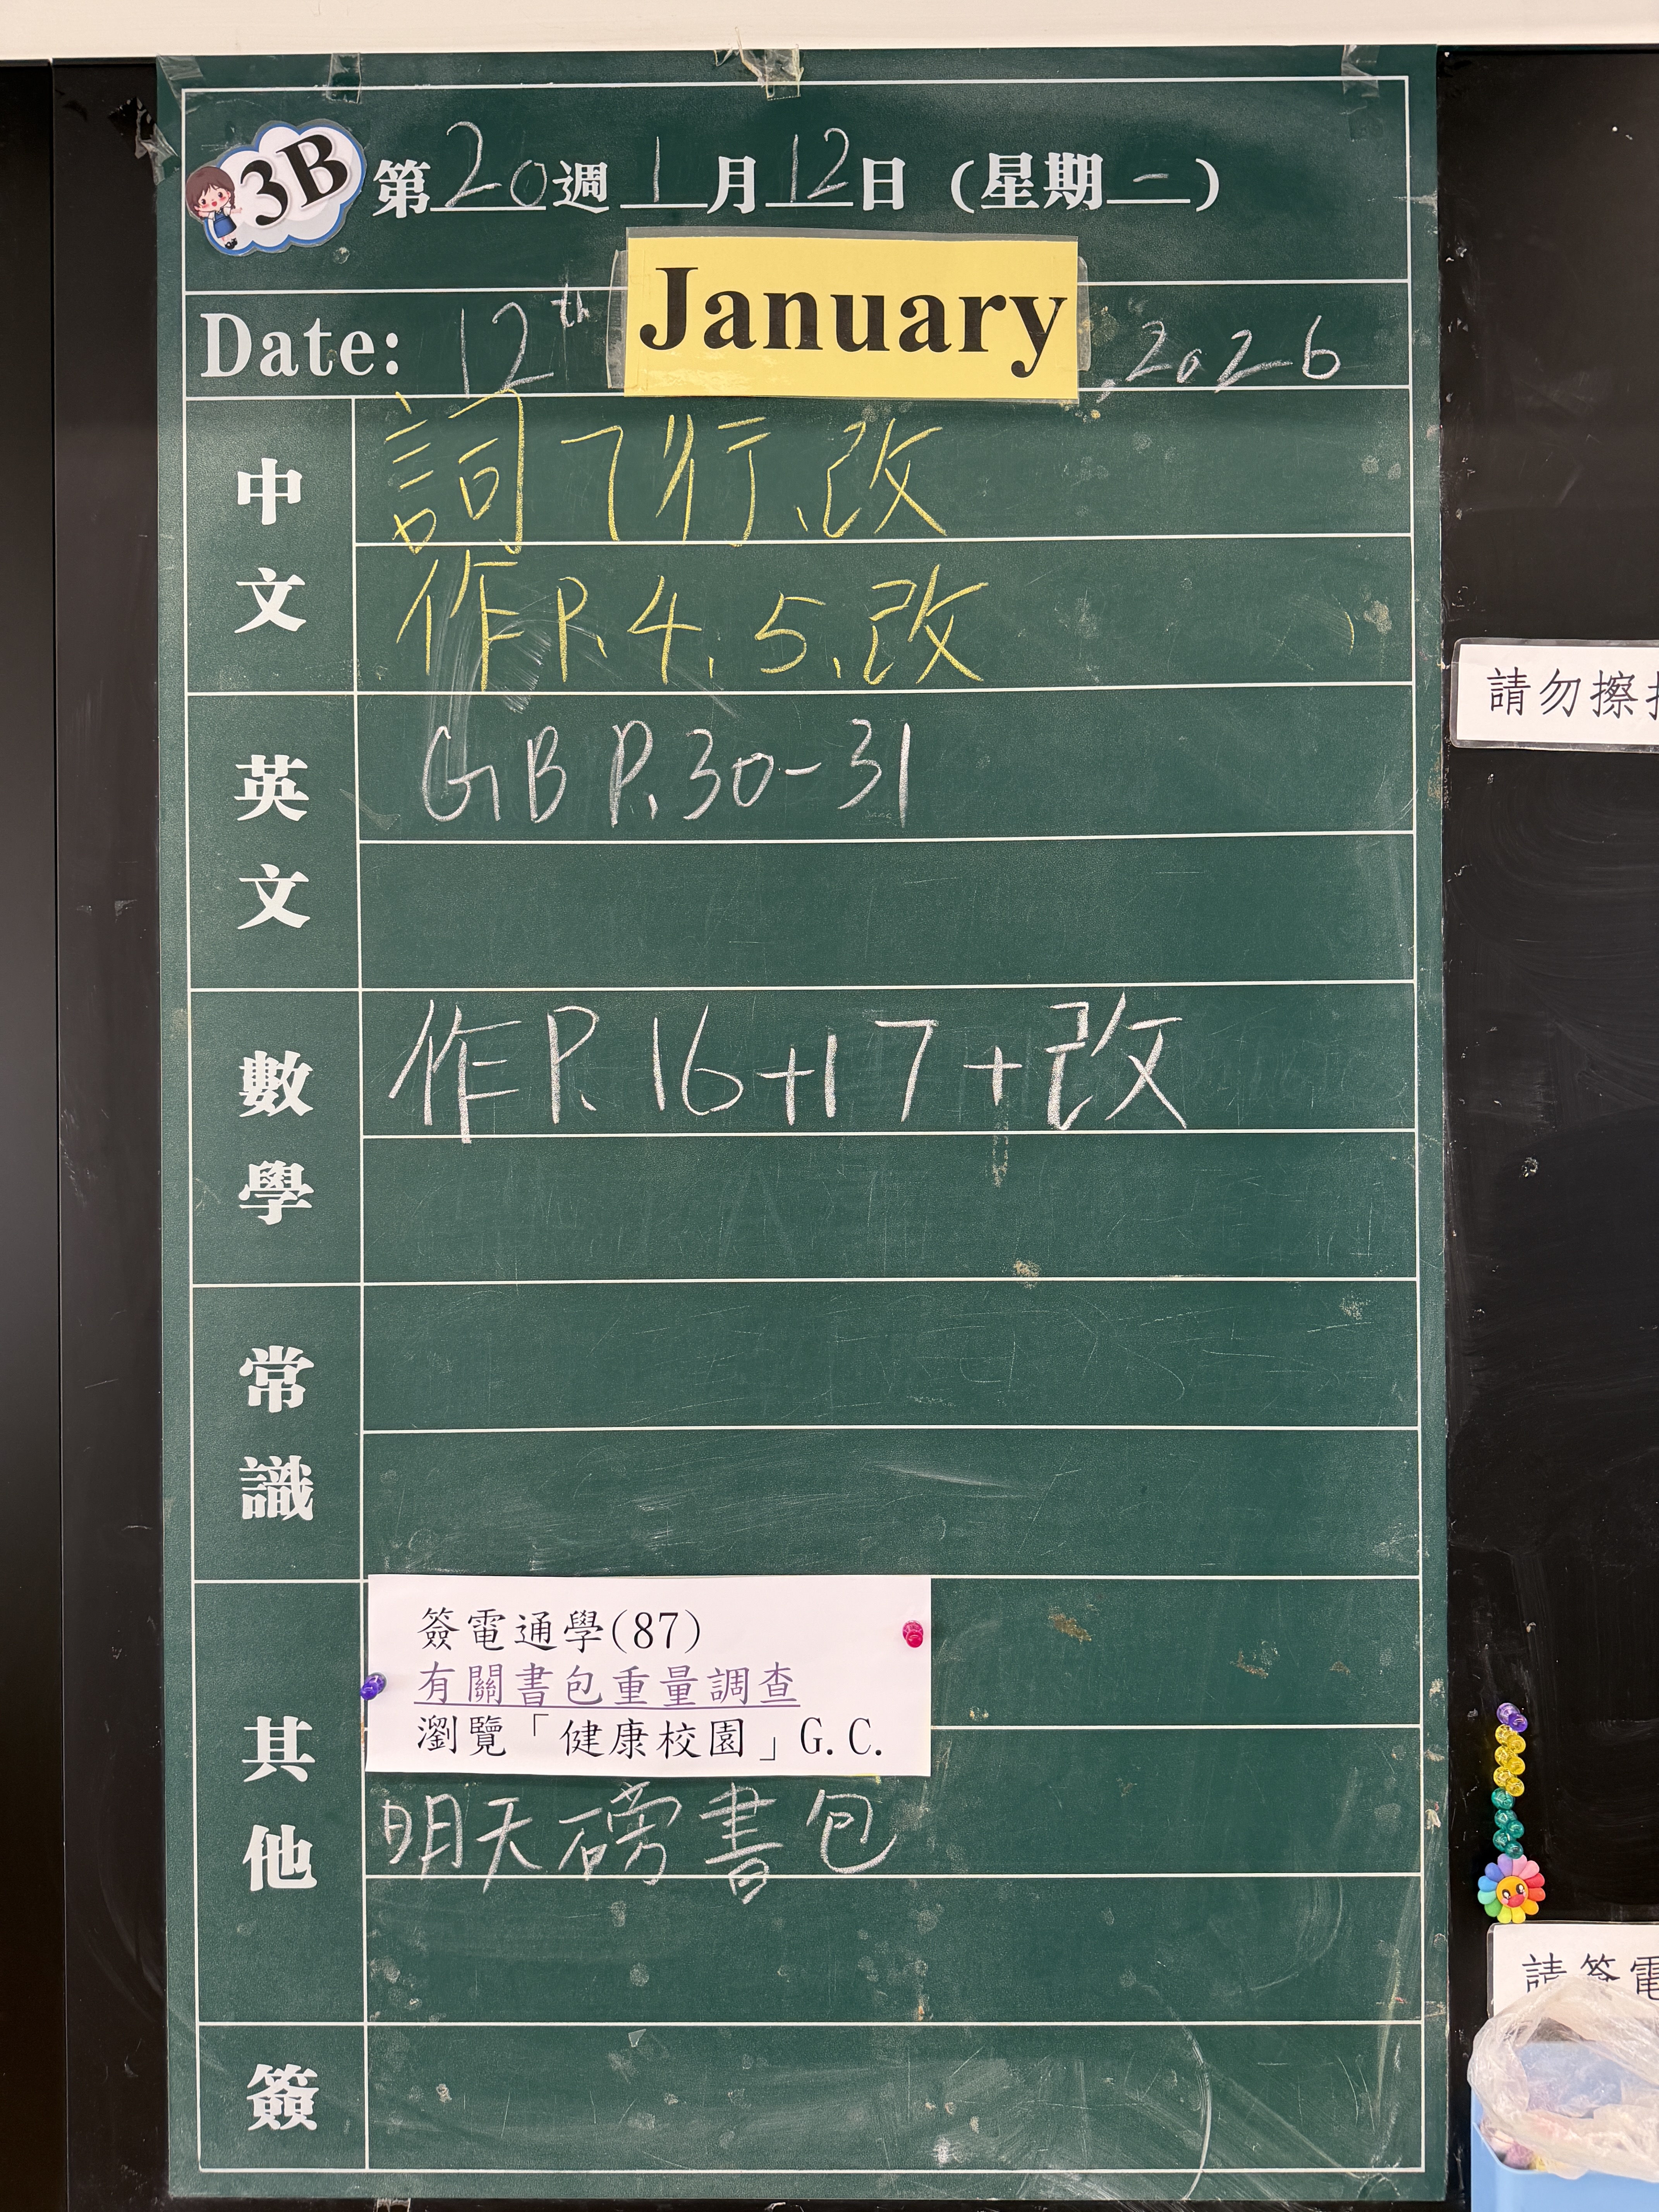 3B
第20週1月12日(星期一)
Date: 12th January, 2026
中文
詞7行、改
作P.4、5、改
英文
GB P.30-31
數學
作P.16+17+改
常識
其他
簽電通學(87)
有關書包重量調查
瀏覽「健康校園」G.C.
明天磅書包
簽
請勿擦
請簽電